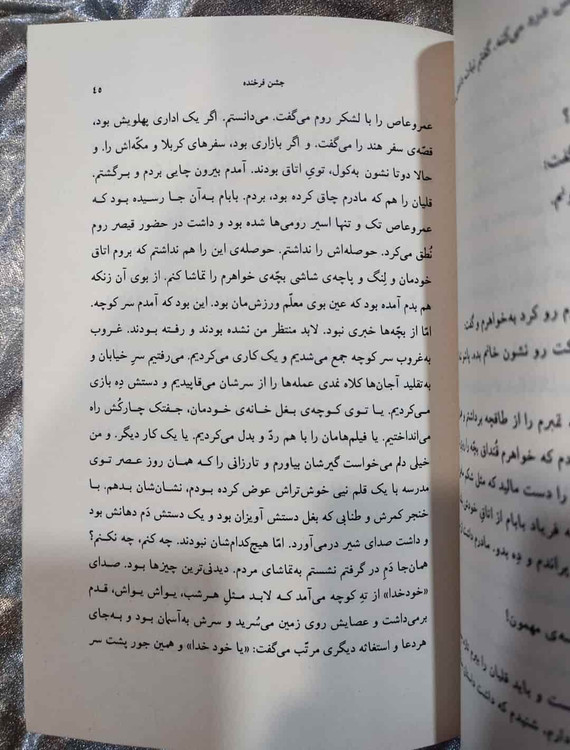 جشن فرخنده
٤٥
عمروعاص را با لشکر روم می‌گفت. می‌دانستم. اگر یک اداری پهلویش بود،
قصّه‌ی سفر هند را می‌گفت. و اگر بازاری بود، سفرهای کربلا و مکّه‌اش را. و
حالا دوتا نشون به‌کول، تویِ اتاق بودند. آمدم بیرون چایی بردم و برگشتم.
قلیان را هم که مادرم چاق کرده بود، بردم. بابام به‌آن جـا رسیـده بـود کـه
عمروعاص تک و تنها اسیر رومی‌ها شده بود و داشت در حضور قیصر روم
نُطق می‌کرد. حوصله‌اش را نداشتم. حوصله‌ی این را هم نداشتم که بروم اتاق
خودمان و لِنگ و پاچه‌ی شاشی بچّه‌ی خواهرم را تماشا کنم. از بوی آن زنکه
هم بدم آمده بود که عین بوی معلّم ورزش‌مان بود. این بود که آمدم سر کوچه.
امّا از بچّه‌ها خبری نبود. لابد منتظر من نشده بودند و رفته بـودند. غـروب
به‌غروب سر کوچه جمع می‌شدیم و یک کاری می‌کردیم. می‌رفتیم سرِ خیابان و
به‌تقلید آجان‌ها کلاه نمدی عمله‌ها را از سرشان می‌قاپیدیم و دستش دِه بازی
مـی‌کردیم. یـا تـوی کـوچه‌ی بـغل خـانه‌ی خـودمان، جـفتک چـارکُش راه
می‌انداختیم. یا فیلم‌هامان را با هم ردّ و بدل می‌کردیم. یا یک کار دیگر. و من
خیلی دلم می‌خواست گیرشان بیاورم و تارزانی را کـه هـمان روز عـصر تـوی
مدرسه با یک قلم نیی خوش‌تراش عوض کرده بـودم، نشـان‌شان بـدهم. بـا
خنجر کمرش و طنابی که بغل دستش آویزان بود و یک دستش دَم دهانش بود
و داشت صدای شیر درمی‌آورد. امّا هیچ‌کدام‌شان نبودند. چه کنم، چه نکـنم؟
همان‌جا دَمِ در گرفتم نشستم به‌تماشای مردم. دیدنی‌ترین چیزها بـود. صـدای
«خودخدا» از تهِ کوچه می‌آمد کـه لابـد مـثلِ هـرشب، یـواش یـواش، قـدم
برمی‌داشت و عصایش روی زمین می‌سُرید و سرش به‌آسمان بود و به‌جای
هردعا و استغاثه دیگری مرتّب می‌گفت: «یا خود خدا» و همین جور پشت سر